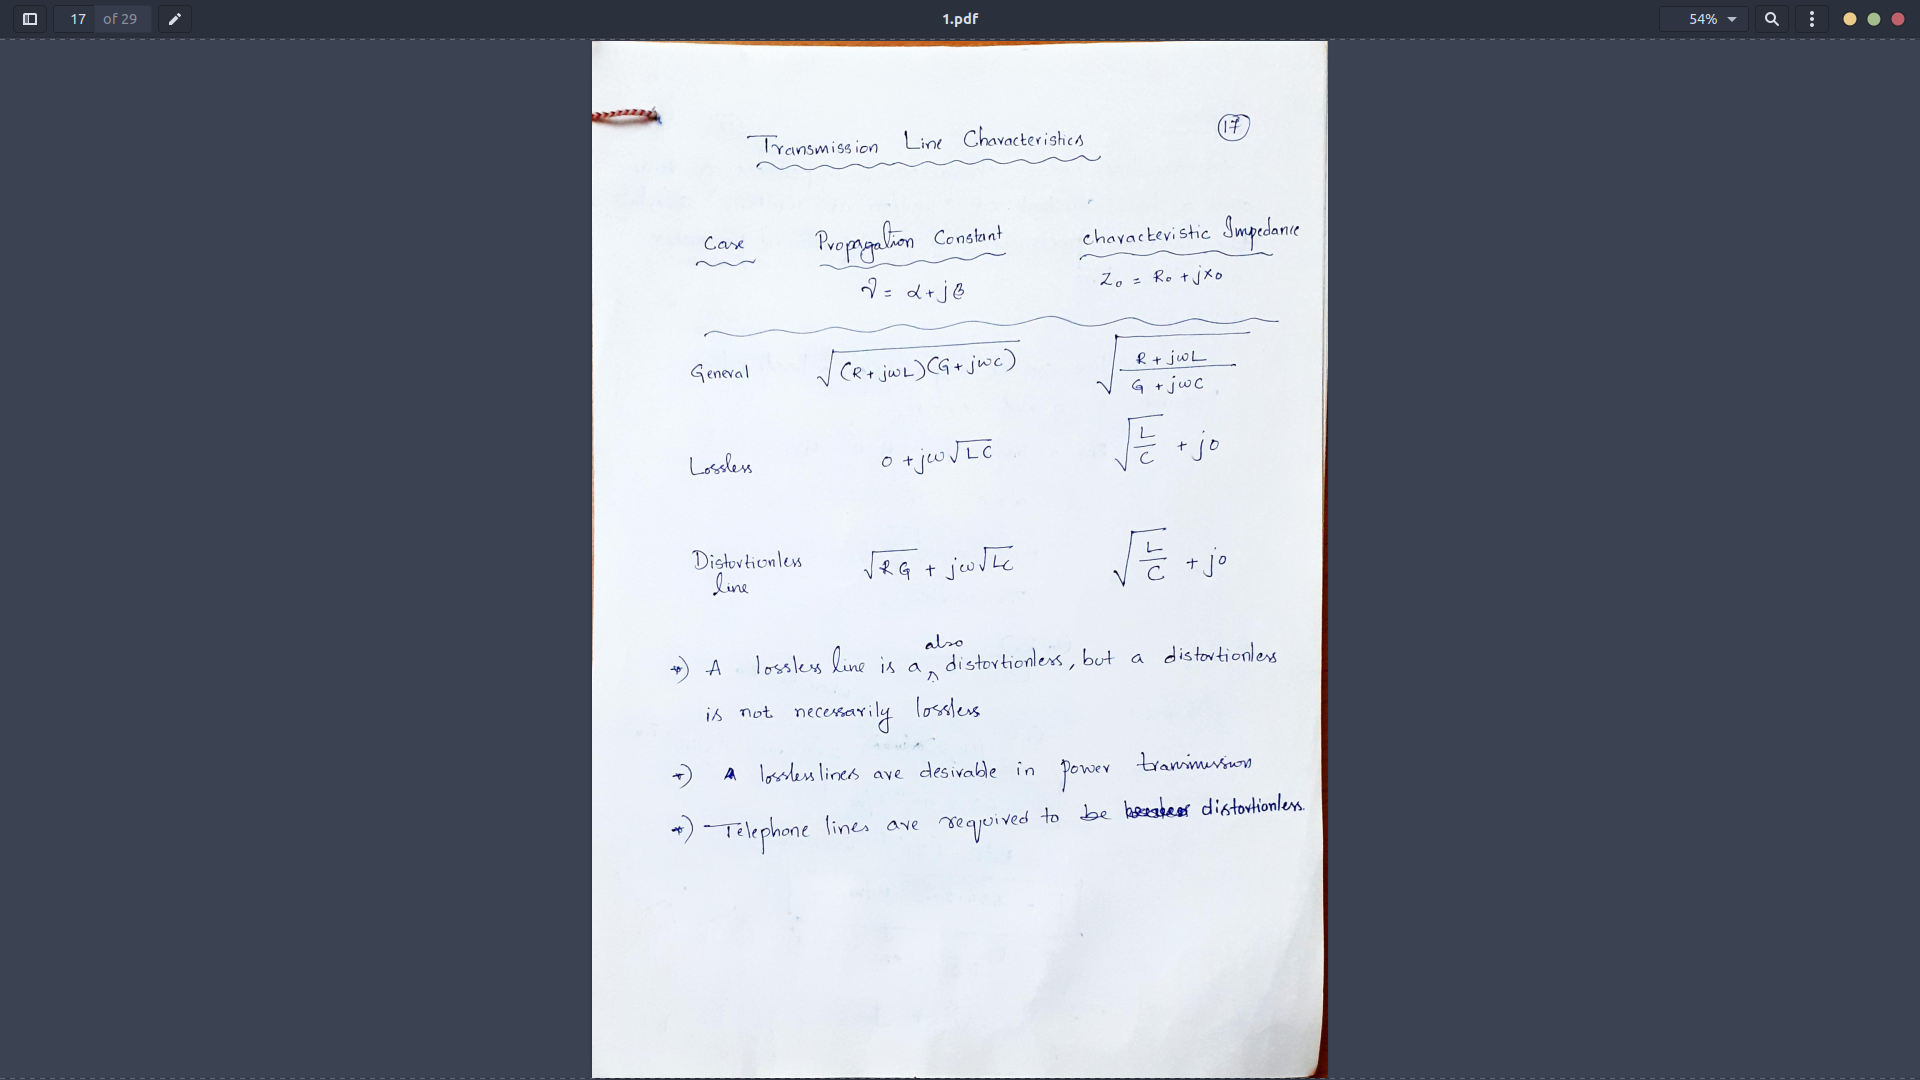 17 of 29 1.pdf 54%
17
Transmission Line Characteristics
Case Propagation Constant Characteristic Impedance
γ = α + jβ Z₀ = R₀ + jX₀
General √(R + jωL)(G + jωC) √(R + jωL / G + jωC)
Lossless 0 + jω√LC √(L/C) + j0
Distortionless line √RG + jω√LC √(L/C) + j0
*) A lossless line is a also distortionless, but a distortionless
is not necessarily lossless
*) lossless lines are desirable in power transmission
*) Telephone lines are required to be distortionless.